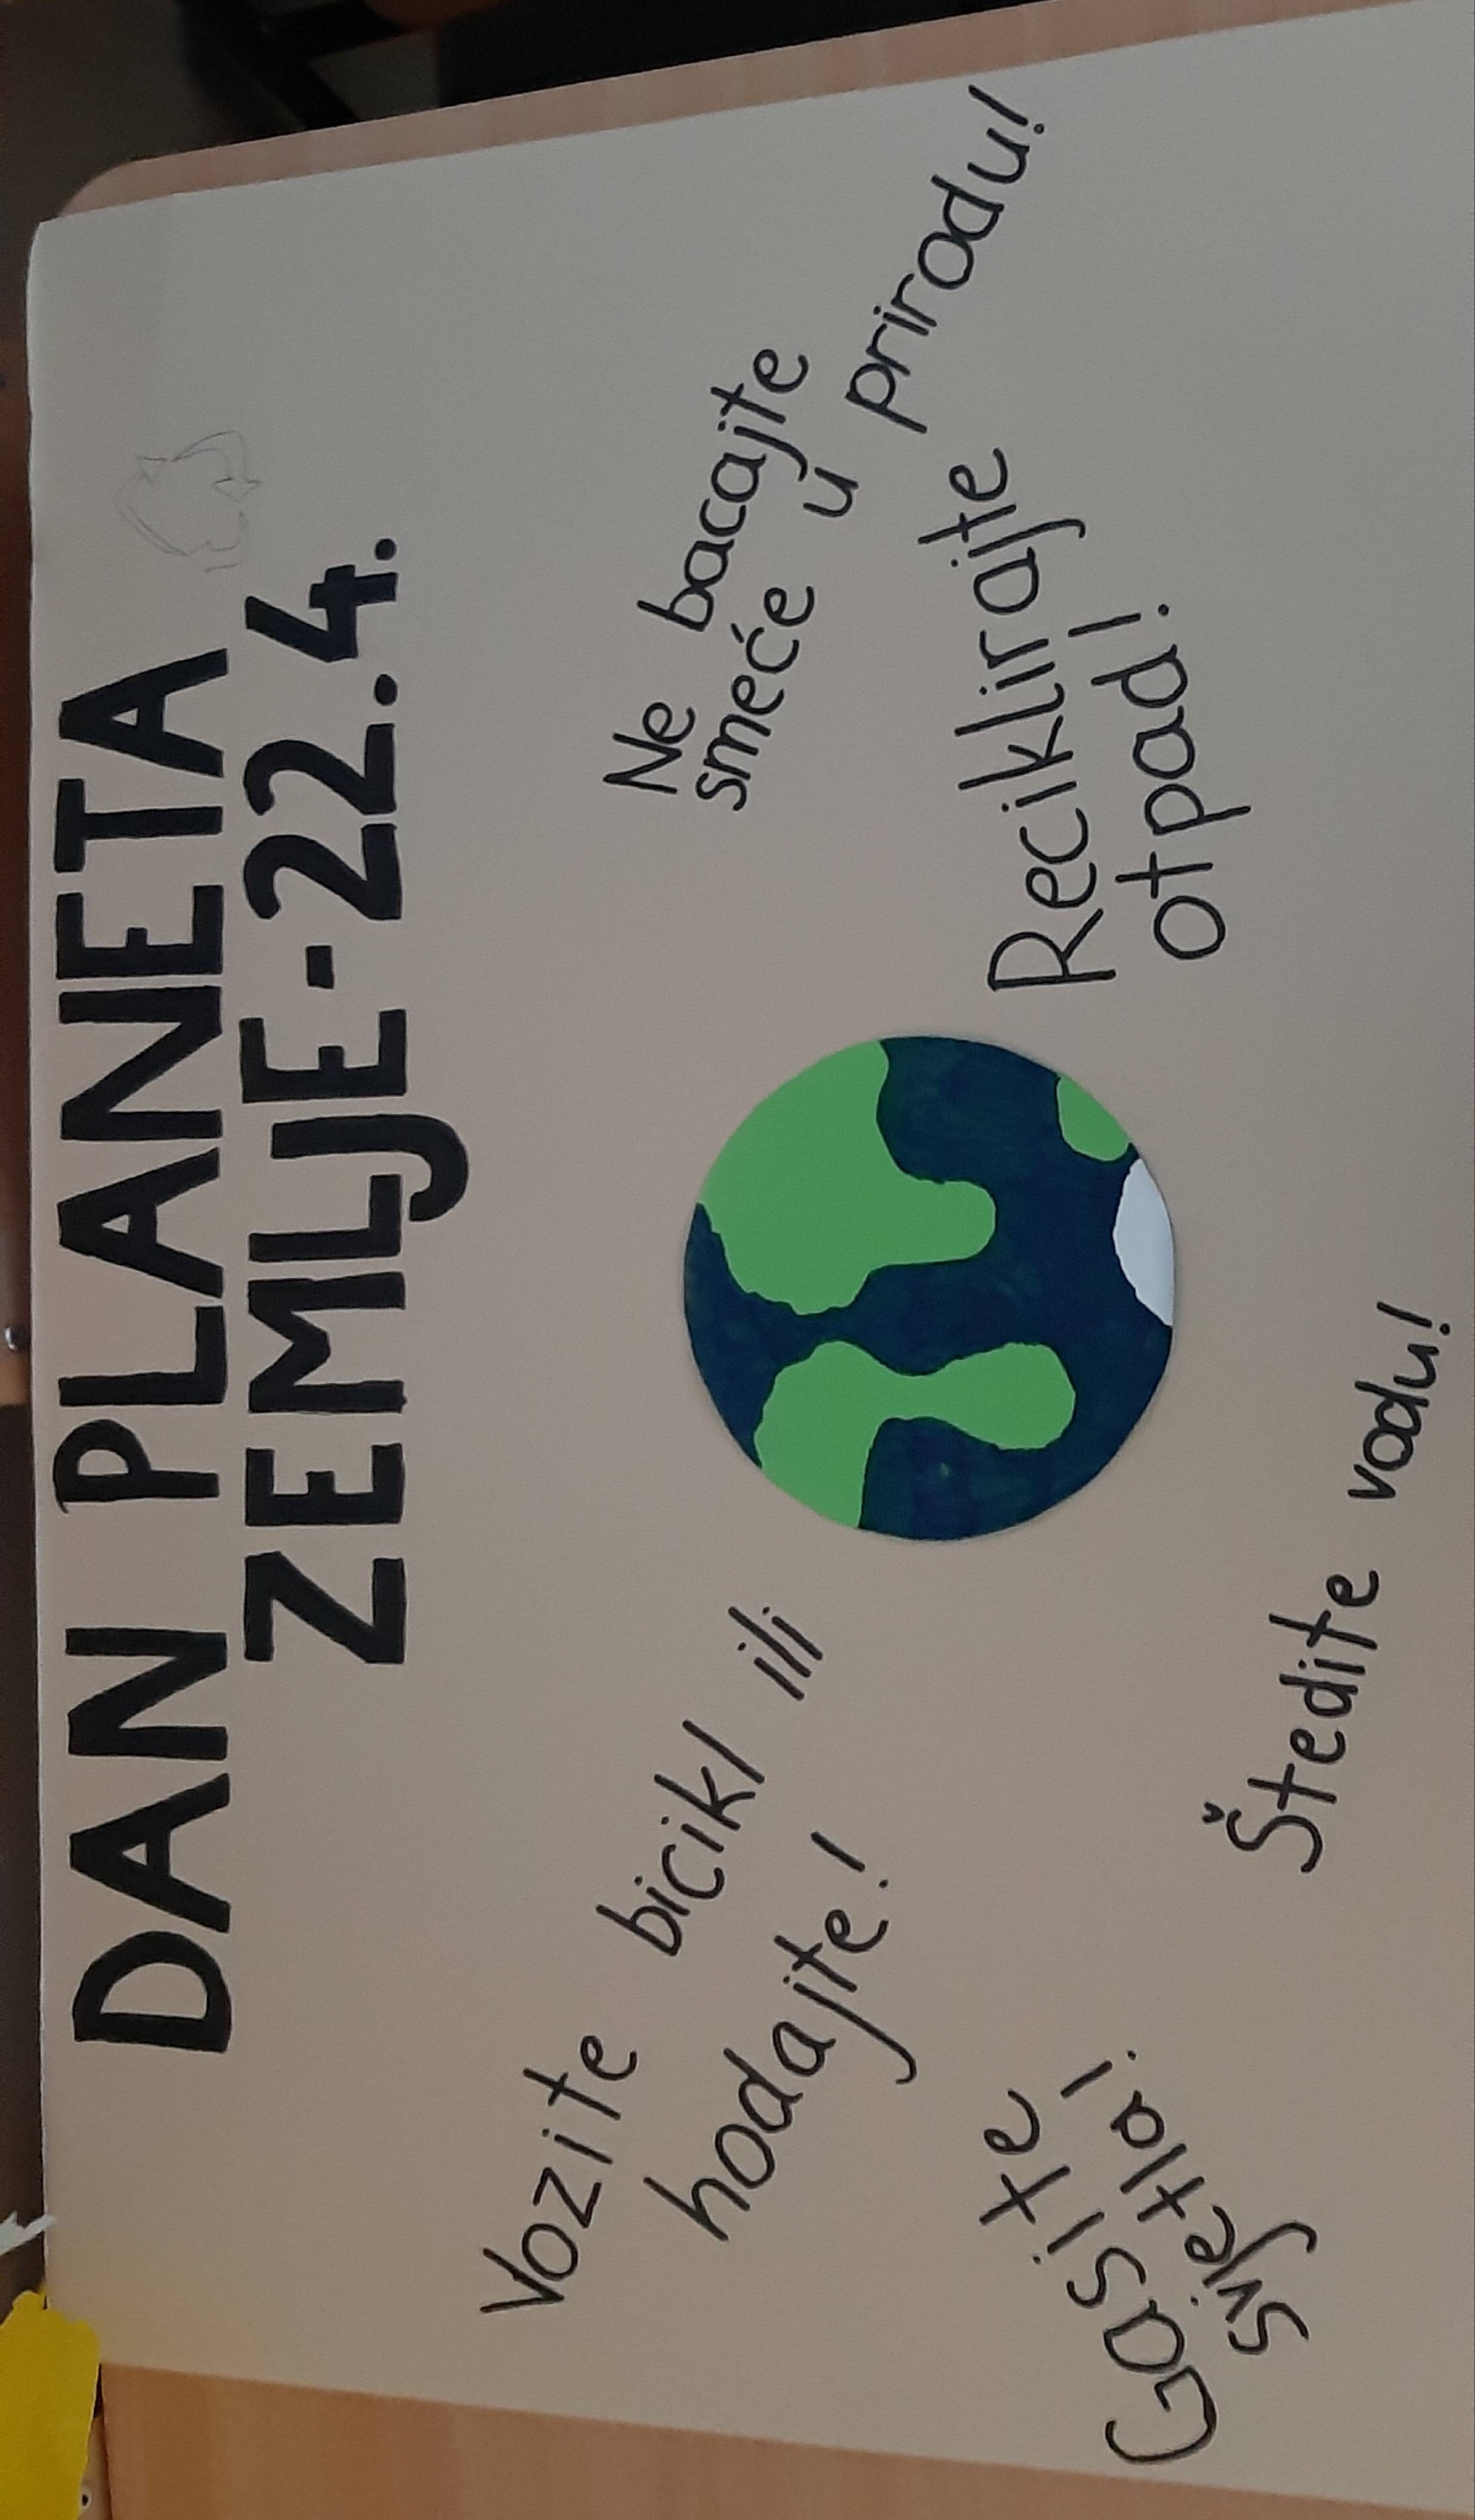 DAN PLANETA
ZEMLJE-22.4.
Vozite bicikl ili
hodajte!
Ne bacajte
smeće u prirodu!
Reciklirajte
otpad!
Gasite
svjetla!
Štedite vodu!